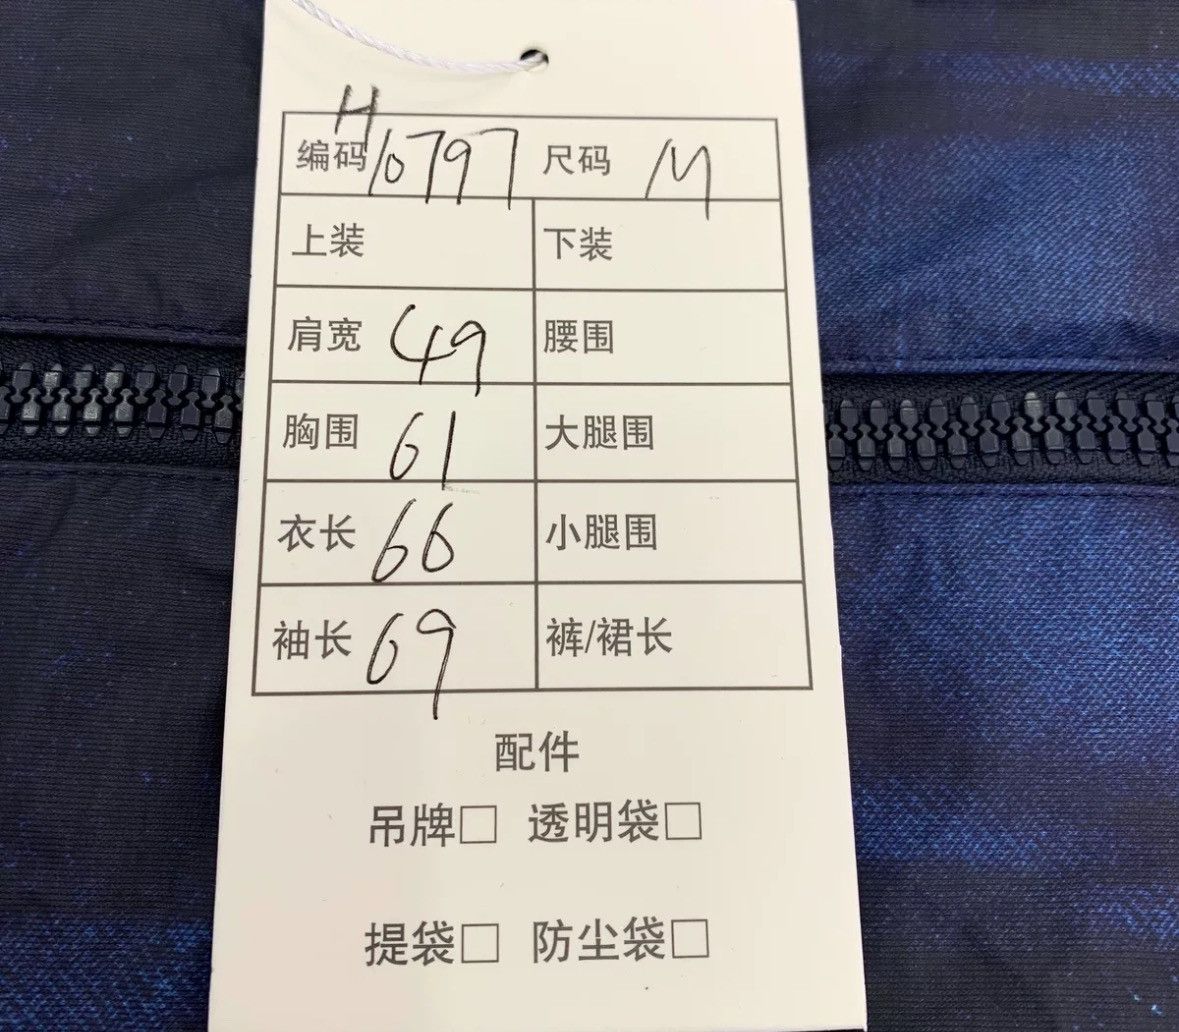 H
编码 10797 尺码 M
上装 下装
肩宽 49 腰围
胸围 61 大腿围
衣长 66 小腿围
袖长 69 裤/裙长
配件
吊牌□ 透明袋□
提袋□ 防尘袋□